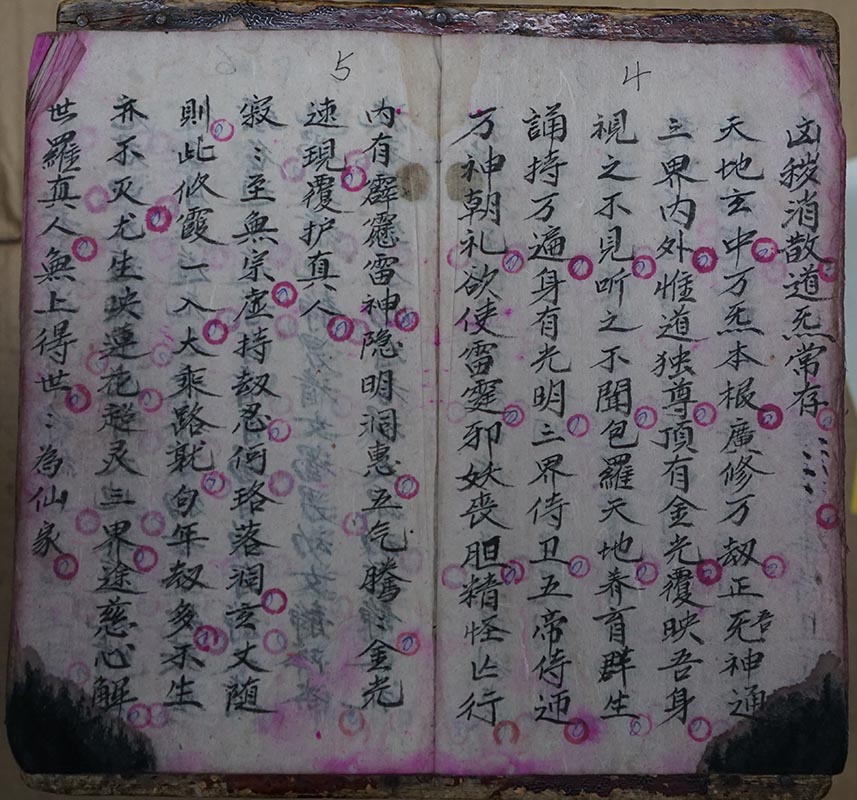 4
凶秽消散道炁常存
天地玄中万炁本根廣修万劫正吾死神通
三界内外惟道独尊頂有金光覆映吾身
視之不見听之不聞包羅天地养育群生
誦持万遍身有光明三界侍卫五帝侍迊
万神朝礼欲使雷霆邪妖丧胆精怪亡行
5
内有霹靂雷神隐明洞惠五气騰〻金光
速現覆护真人
寂〻至無宗虚持劫忍何珞落洞玄文随
則此攸霞一入大乘路就句年劫多不生
亦不灭尤生映蓮花超灵三界途慈心解
世羅真人無上得世〻為仙家